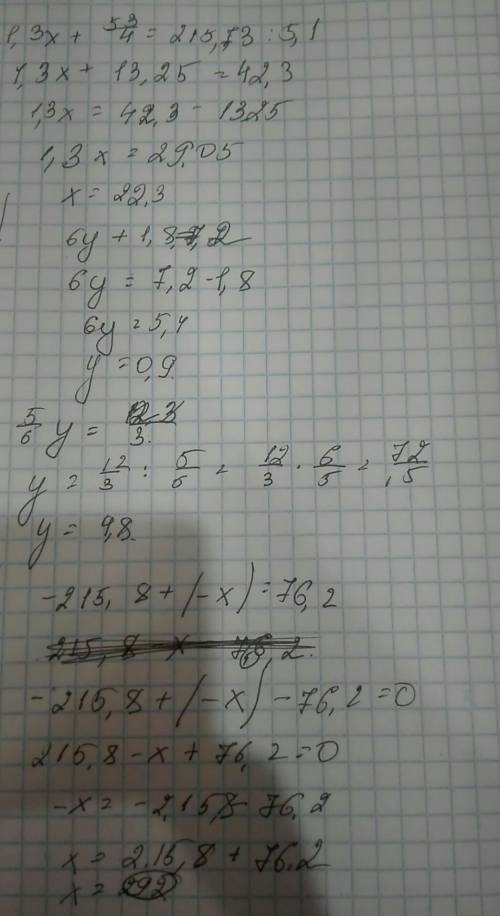 1,3x + 53/4 = 215,73 : 5,1
1,3x + 13,25 = 42,3
1,3x = 42,3 - 1325
1,3x = 29,05
x = 22,3
6y + 1,8 = 7,2
6y = 7,2 - 1,8
6y = 5,4
y = 0,9
5/6 y = 12/3
y = 12/3 : 5/6 = 12/3 · 6/5 = 72/15
y = 9,8.
-215,8 + (-x) = 76,2
215,8 x 76,2.
-215,8 + (-x) - 76,2 = 0
215,8 - x + 76,2 = 0
-x = -215,8 - 76,2
x = 215,8 + 76.2
x = 292